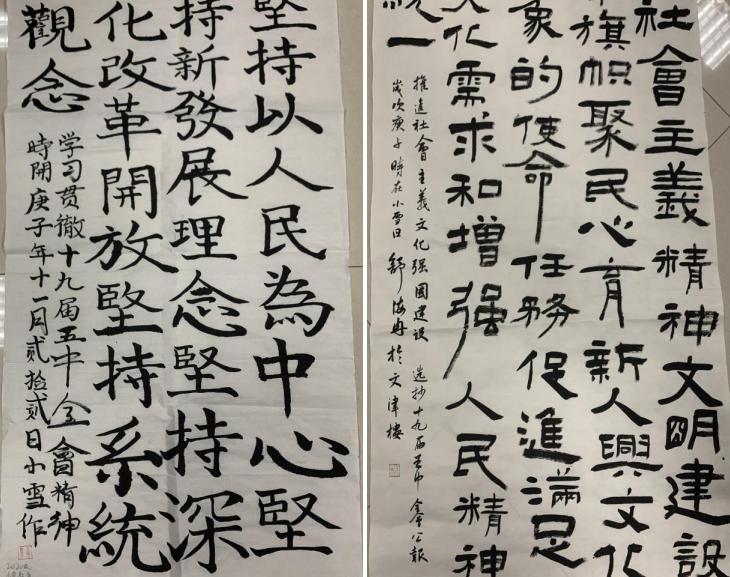 堅持以人民為中心堅
持新發展理念堅持深
化改革開放堅持系統
觀念
学习贯徹十九届五中全會精神
時開庚子年十一月貳拾貳日小雪作
社會主義精神文明建設
旗幟聚民心育新人興文化
象的使命任務促進滿足
文化需求和增强人民精神
統一
推進社會主義文化强國建设 选抄十九届五中全會公報
歲次庚子時在小雪日 舒海舟於文津樓